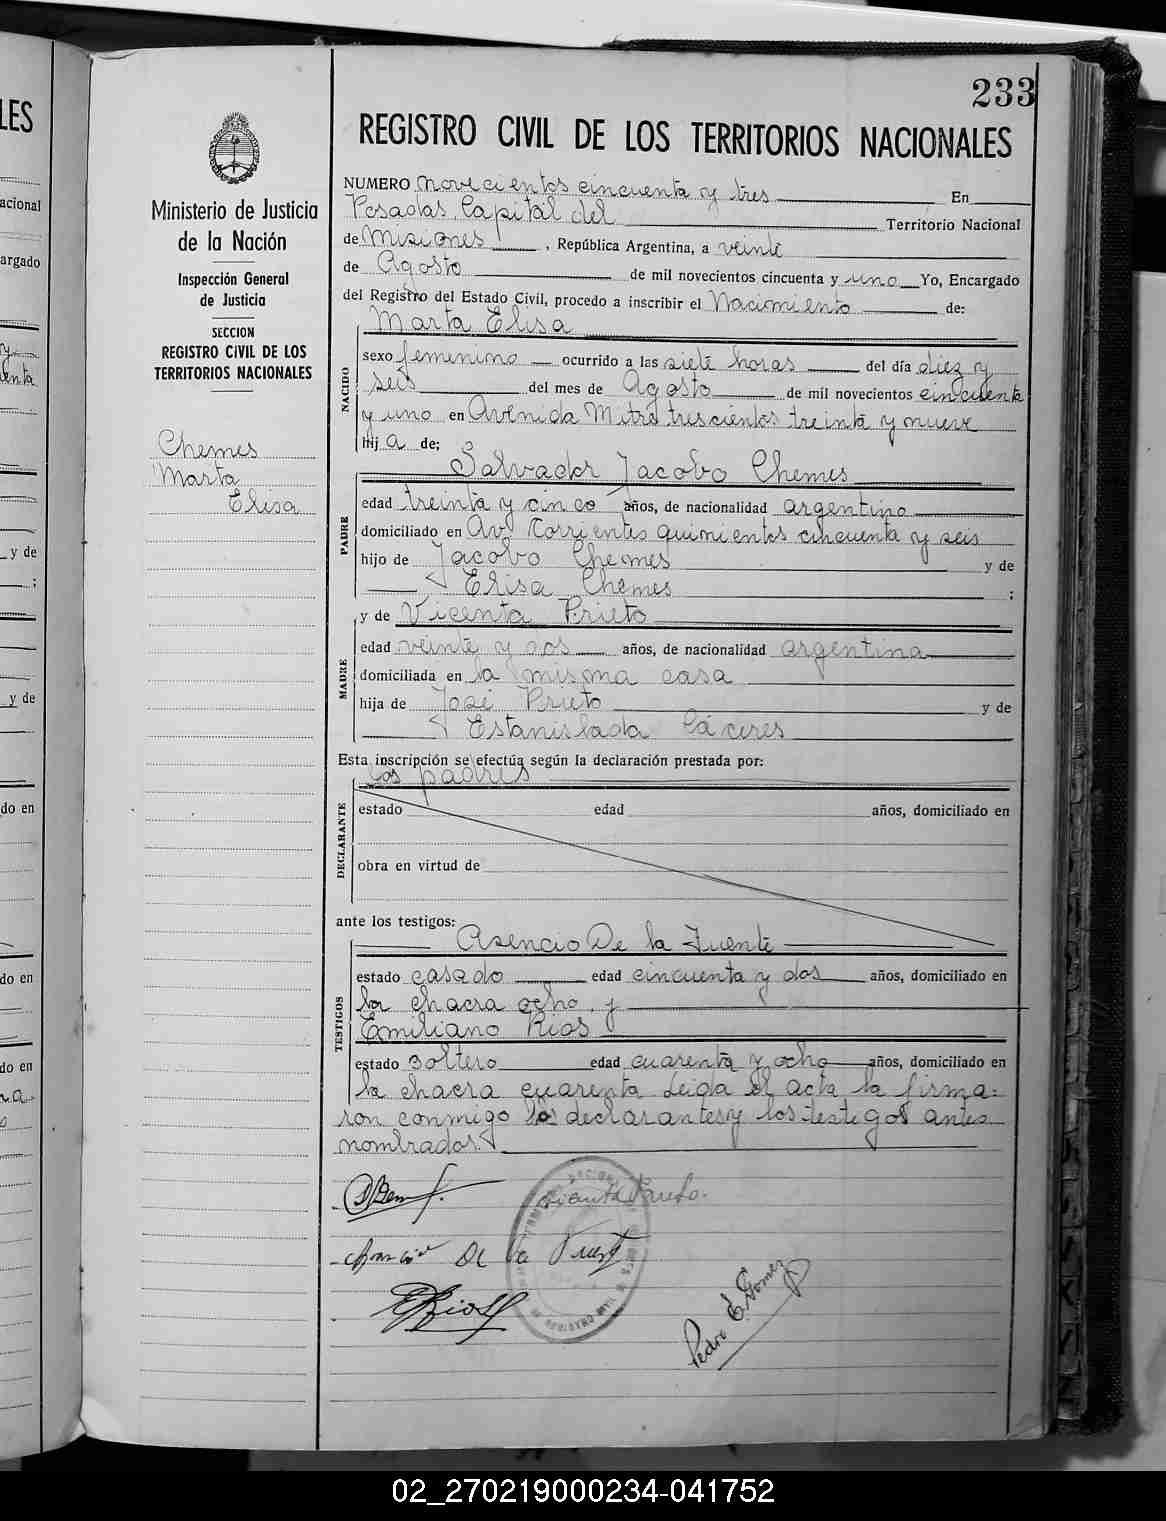 233
REGISTRO CIVIL DE LOS TERRITORIOS NACIONALES
Ministerio de Justicia
de la Nación
Inspección General
de Justicia
SECCION
REGISTRO CIVIL DE LOS
TERRITORIOS NACIONALES
Chemes
Marta
Elisa
NUMERO novecientos cincuenta y tres En
Posadas, Capital del Territorio Nacional
de Misiones, República Argentina, a veinte
de Agosto de mil novecientos cincuenta y uno Yo, Encargado
del Registro del Estado Civil, procedo a inscribir el Nacimiento de:
Marta Elisa
NACIDO
sexo femenino ocurrido a las siete horas del día diez y
seis del mes de Agosto de mil novecientos cincuenta
y uno en Avenida Mitre trescientos treinta y nueve
hij a de;
Salvador Jacobo Chemes
PADRE
edad treinta y cinco años, de nacionalidad argentino
domiciliado en Av. Corrientes quinientos cincuenta y seis
hijo de Jacobo Chemes y de
Elisa Chemes ;
y de Vicenta Prieto
MADRE
edad veinte y dos años, de nacionalidad argentina
domiciliada en la misma casa
hija de José Prieto y de
Estanislada Cáceres
Esta inscripción se efectúa según la declaración prestada por:
los padres
DECLARANTE
estado edad años, domiciliado en
obra en virtud de
ante los testigos:
Asencio De la Fuente
TESTIGOS
estado casado edad cincuenta y dos años, domiciliado en
la chacra ocho, y
Emiliano Rios
estado soltero edad cuarenta y ocho años, domiciliado en
la chacra cuarenta Leida el acta la firma-
ron conmigo los declarantes y los testigos antes
nombrados.
Vicenta Prieto.
De la Fuente
E Rios
Pedro E. Gomez
LES
acional
argado
y de
;
y de
do en
do en
do en
02_270219000234-041752